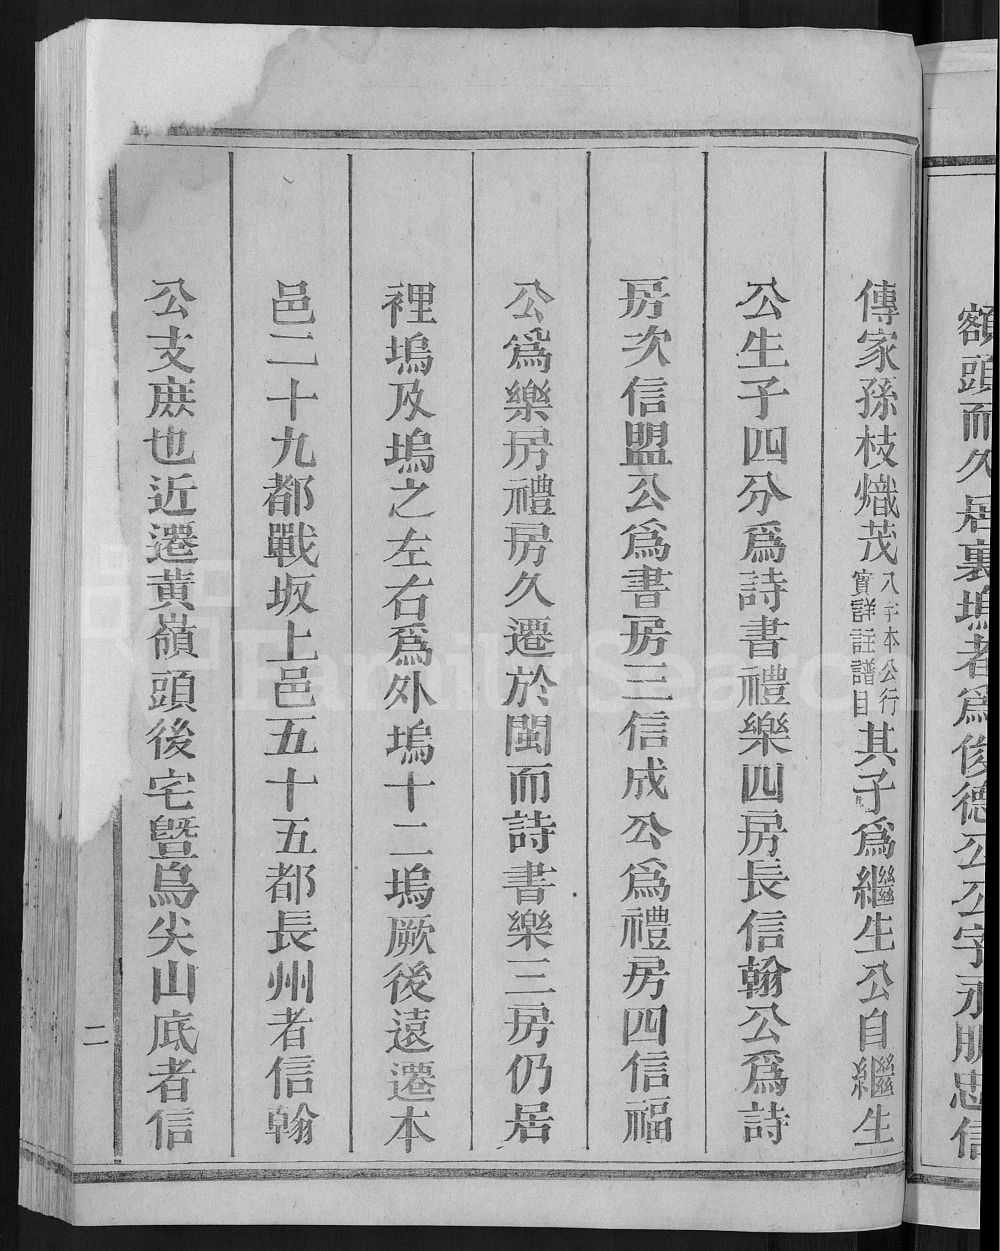 額頭而久居裏塢者爲俊德公公字永朋忠信
傳家孫枝熾茂八字本公行實詳註譜目其子爲繼生公自繼生
公生子四分爲詩書禮樂四房長信翰公爲詩
房次信盟公爲書房三信成公爲禮房四信福
公爲樂房禮房久遷於閩而詩書樂三房仍居
裡塢及塢之左右爲外塢十二塢厥後遠遷本
邑二十九都戰坂上邑五十五都長州者信翰
公支庶也近遷黃嶺頭後宅暨烏尖山底者信
二
FamilySearch